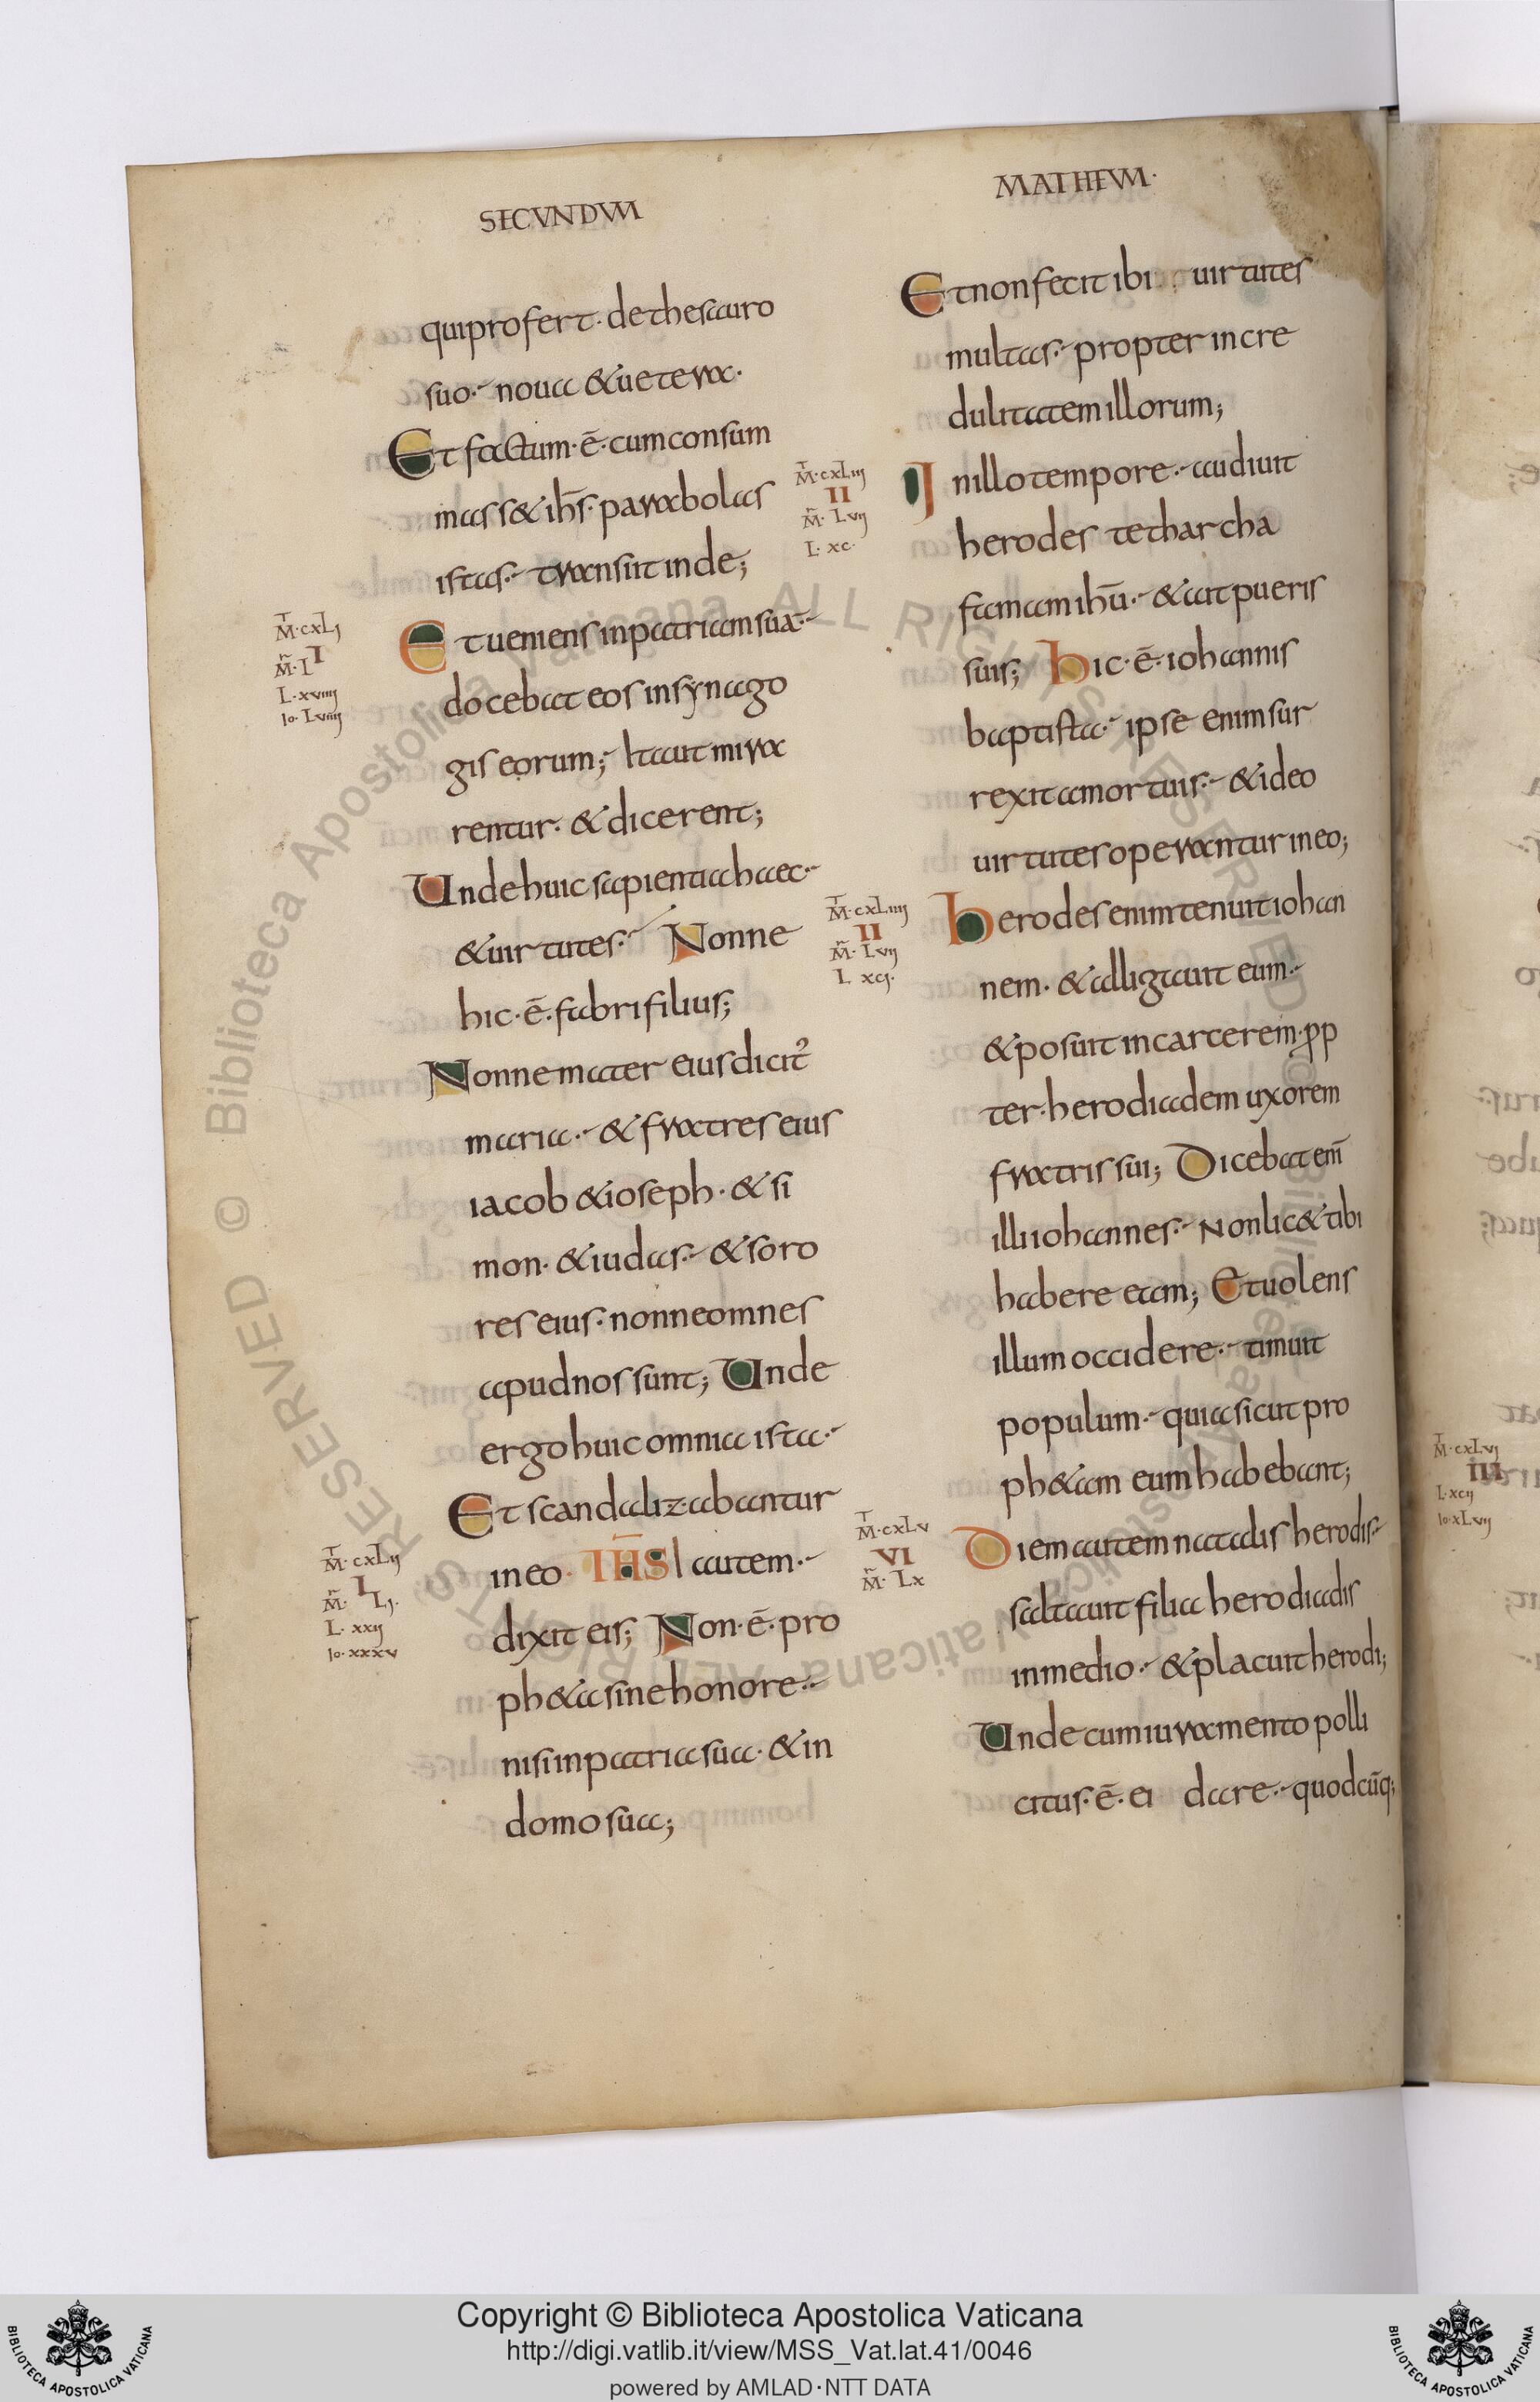 SECVNDVM
quiprofert· dethesauro
suo·- noua &uetera·
Et factum·ē·cumconsum
mass& ih̄s· parabolas
istas·- transiit inde;
T̄
M·cxLj
M̄·I I
L·xviiij
Io·Lviiij
Etueniens inpatriam sua·-
docebat eos insynago
gis eorum; Itaut mira
rentur· & dicerent;
Unde huic sapientia haec·-
&uirtutes·- Nonne
hic·ē·fabri filius;
Nonne mater eius dicit᷒
maria·- & fratres eius
iacob &ioseph· & si
mon· &iudas·- &soro
res eius· nonne omnes
apud nos sunt; Unde
ergo huic omnia ista·-
Et scandaliz·abantur
in eo· IH̄S autem·-
T̄
M·cxLij
I
M̄· Lj·
L·xxij
Io·xxxv
dixit eis; Non·ē·pro
ph&a sine honore·-
nisi inpatria sua· &in
domo sua;
MATHEVM·
Et non fecit ibi uirtutes
multas·- propter incre
dulitatem illorum;
T̄
M·cxLiij
II
M̄· Lvij
L·xc·
In illo tempore·- audiuit
herodes tetharcha
famam ih̄u·- &ait pueris
suis; hic·ē·iohannis
baptista·- ipse enim sur
rexit amortuis·- &ideo
uirtutes operantur in eo;
T̄
M·cxLiiij
II
M̄· Lvij
L xcj·
herodes enim tenuit iohan
nem· &alligauit eum·-
&posuit in carcerem·pp
ter·herodiadem uxorem
fratris sui; Dicebat eni̅
illi iohannes·- Non lic& tibi
habere eam; Et uolens
illum occidere·- timuit
populum·- quia sicut pro
ph&am eum habebant;
T̄
M·cxLv
VI
M̄· Lx
Diem autem natalis herodis·-
saltauit filia herodiadis
in medio·- &placuit herodi;
Unde cum iuramento polli
citus·ē·ei dare·- quodcūq;
T̄
M·cxLvj
III
L·xcij
Io·xLvij
Copyright © Biblioteca Apostolica Vaticana
http://digi.vatlib.it/view/MSS_Vat.lat.41/0046
powered by AMLAD·NTT DATA
BIBLIOTECA APOSTOLICA VATICANA
BIBLIOTECA APOSTOLICA VATICANA